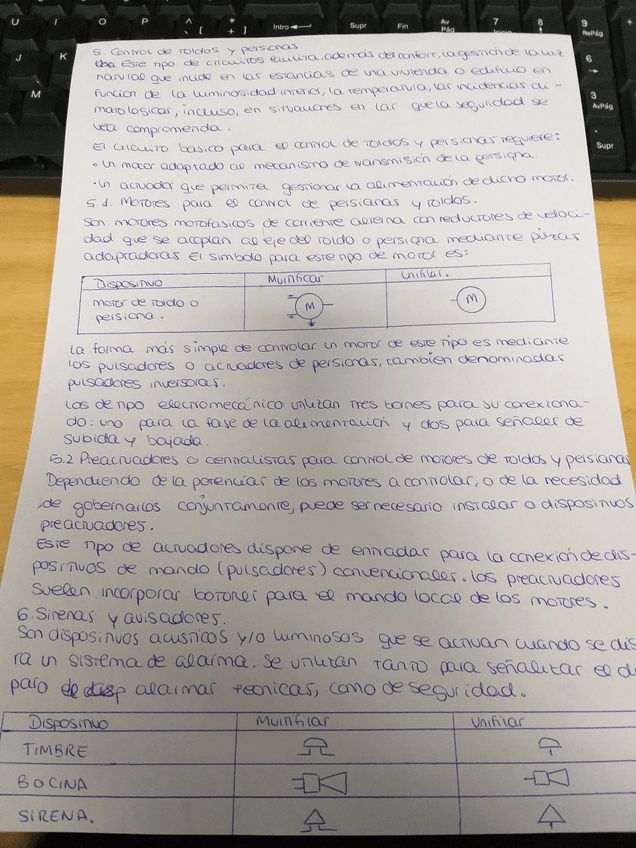 I
U
O
P
Intro
Supr
Fin
Av
Pág
7
8
9
RePág
6
3
AvPág
Supr
5. Control de toldos y persianas
Este tipo de circuitos facilita, además del confort, la gestión de la luz
natural que incide en las estancias de una vivienda o edificio en
funcion de la luminosidad interior, la temperatura, las incidencias cli-
matologicas, incluso, en situaciones en las que la seguridad se
vea comprometida.
El circuito basico para el control de toldos y persianas requiere:
• Un motor adaptado al mecanismo de transmisión de la persiana.
• Un actuador que permita gestionar la alimentación de dicho motor.
5.1. Motores para el control de persianas y toldos.
Son motores monofasicos de corriente alterna con reductores de veloci-
dad que se acoplan al eje del toldo o persiana mediante piezas
adaptadoras. El simbolo para este tipo de motor es:
Dispositivo Multifilar Unifilar.
motor de toldo o M M
persiana.
La forma más simple de controlar un motor de este tipo es mediante
los pulsadores o actuadores de persianas, tambien denominadas
pulsadores inversoras.
Los de tipo electromecánico utilizan tres bornes para su conexiona-
do: uno para la fase de la alimentación y dos para señales de
subida y bajada.
5.2 Preactuadores o centralistas para control de motores de toldos y persianas
Dependiendo de la potencias de los motores a controlar, o de la necesidad
de gobernarlos conjuntamente, puede ser necesario instalar o dispositivos
preactuadores.
Este tipo de actuadores dispone de entradas para la conexión de dis-
positivos de mando (pulsadores) convencionales. Los preactuadores
suelen incorporar botones para el mando local de los motores.
6. Sirenas y avisadores.
Son dispositivos acusticos y/o luminosos que se activan cuando se dis
ra un sistema de alarma. Se utilizan tanto para señalizar el di
paro de alarmas tecnicas, como de seguridad.
Dispositivo Multifilar Unifilar
TIMBRE
BOCINA
SIRENA.